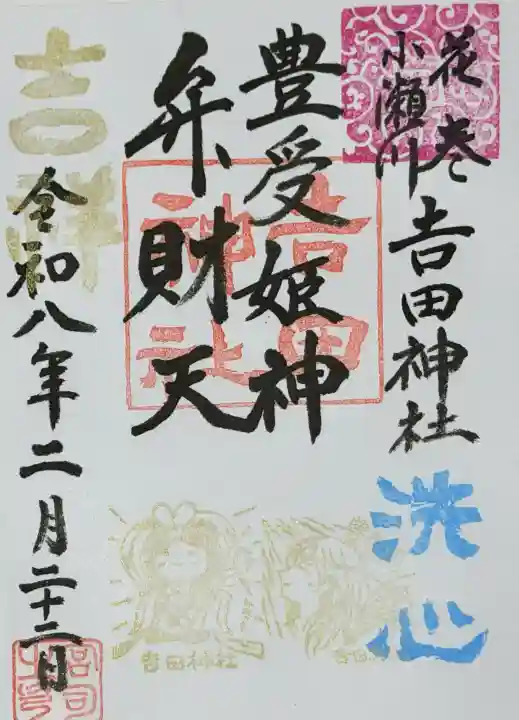 花巻
小瀬川
𠮷田神社
洗心
豊受姫神
弁財天
吉田
神社
吉祥
令和八年二月二十二日
吉田神社
吉田
宮司
之印